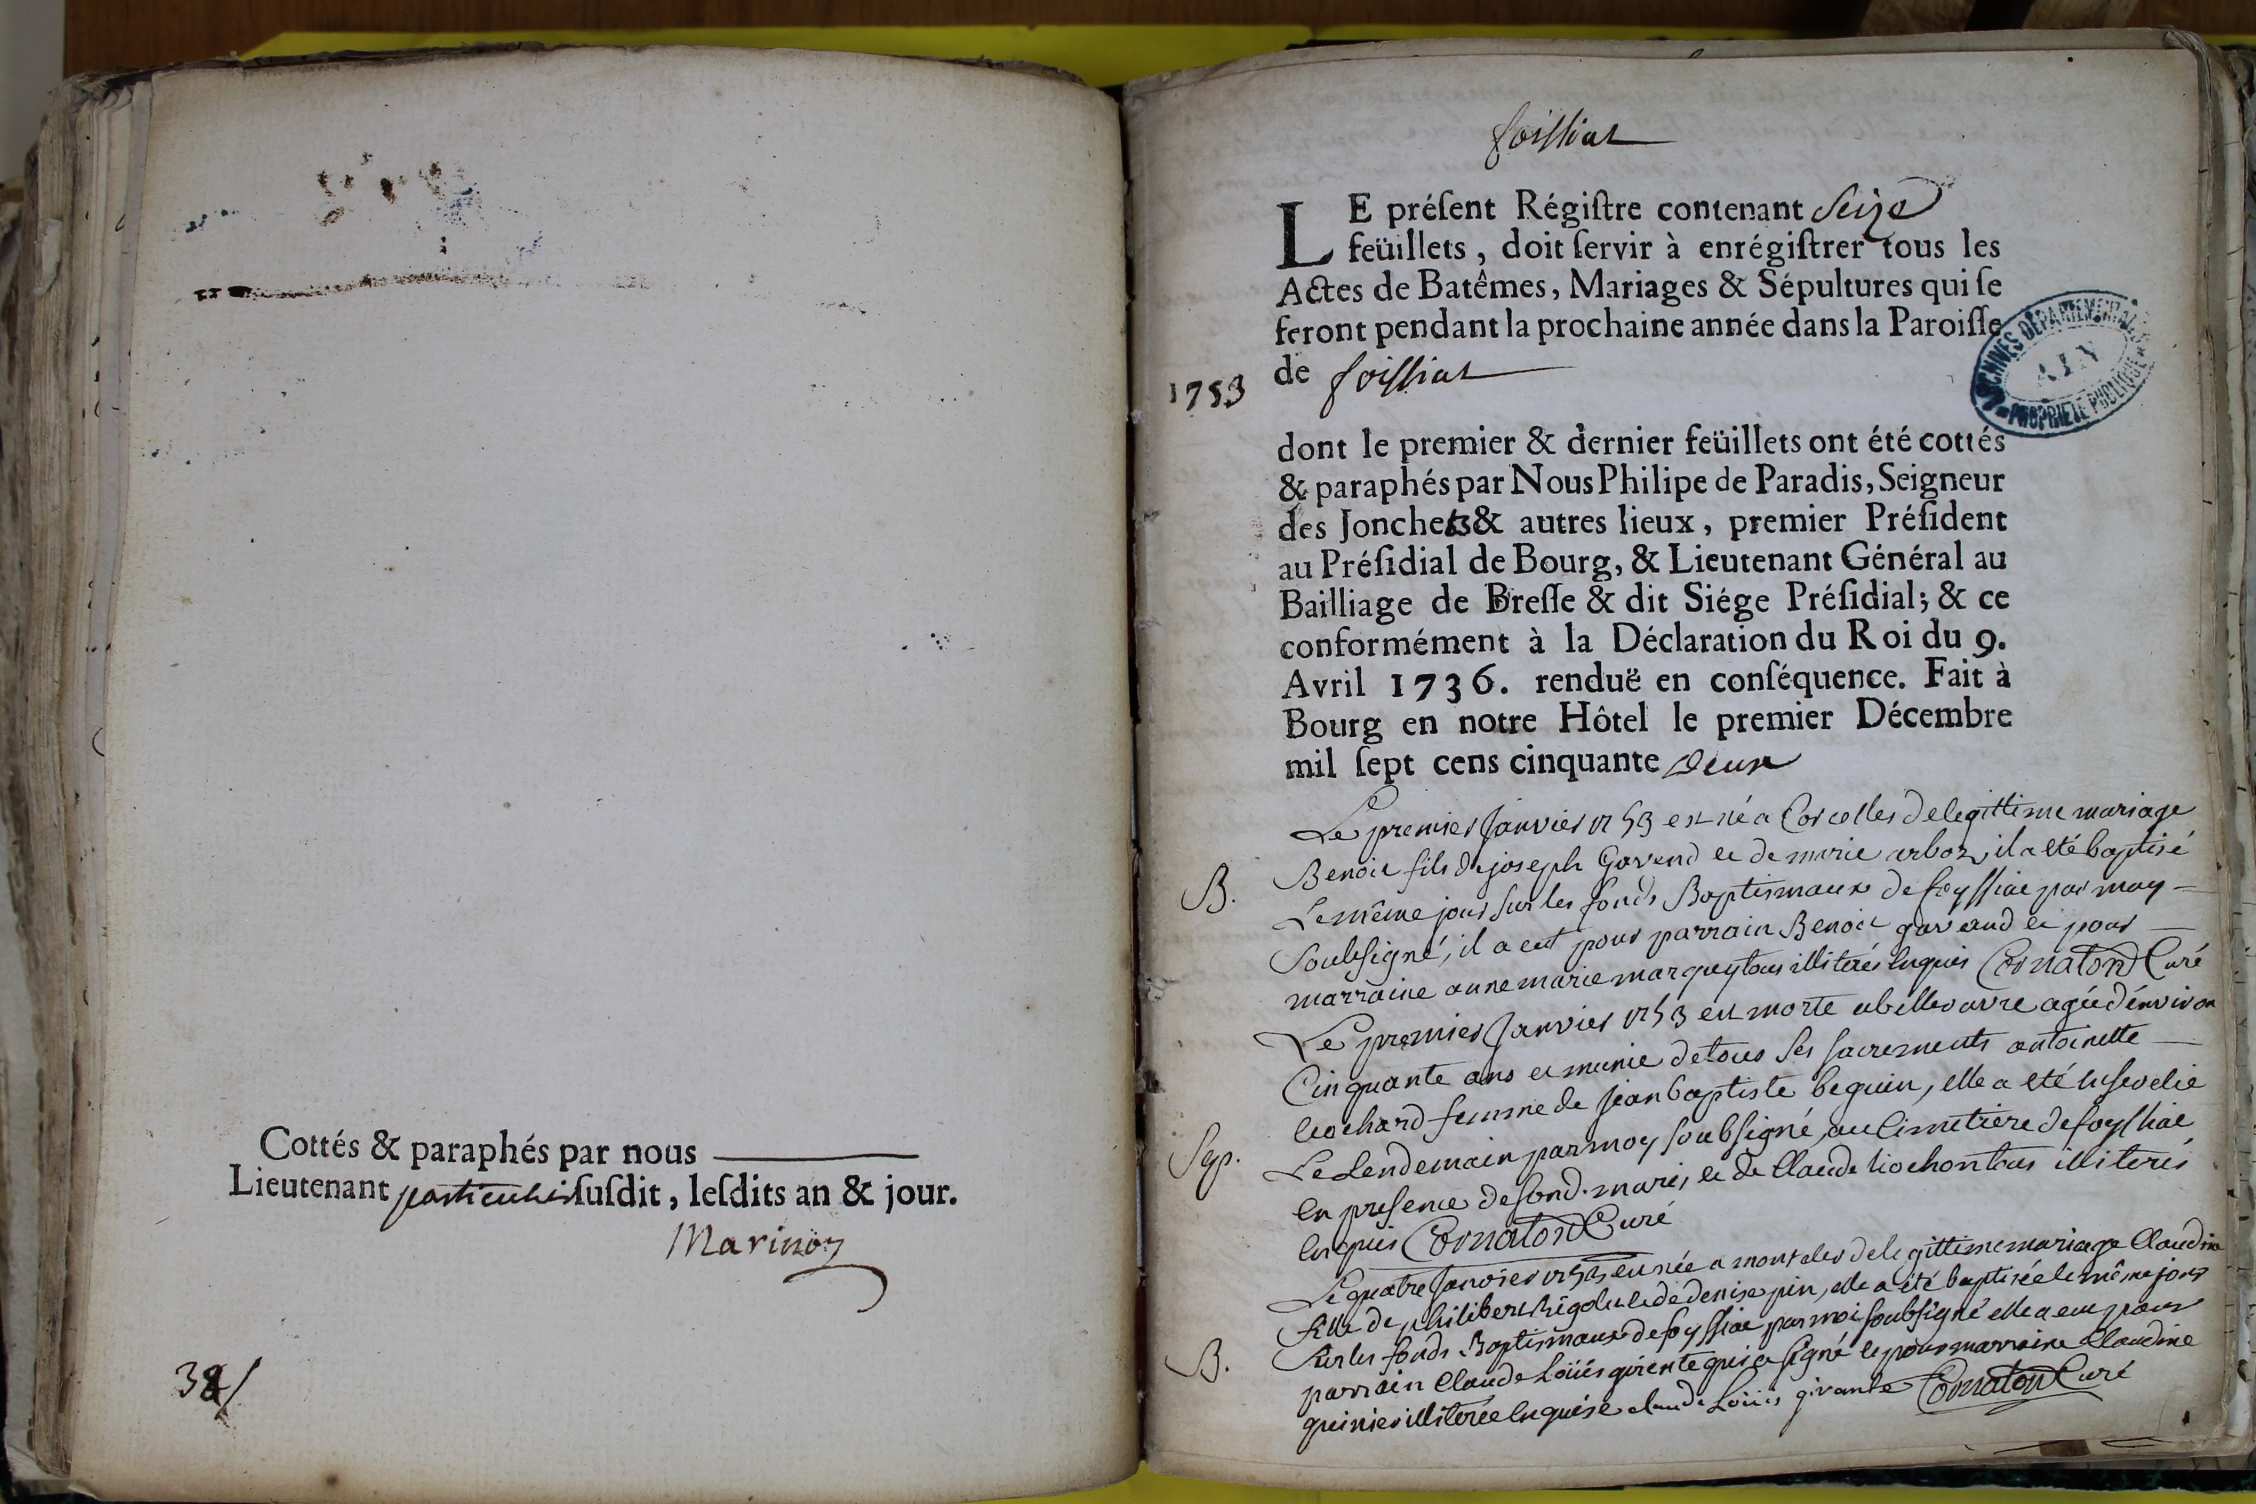 Cottés & paraphés par nous
Lieutenant particulier susdit, lesdits an & jour.
Marinon
38/
foissiat
LE présent Régistre contenant Seize
feüillets, doit servir à enrégistrer tous les
Actes de Batêmes, Mariages & Sépultures qui se
feront pendant la prochaine année dans la Paroisse
de foissiat
1753
ARCHIVES DÉPARTEMENTALES
AIN
PROPRIÉTÉ PUBLIQUE
dont le premier & dernier feüillets ont été cottés
& paraphés par Nous Philipe de Paradis, Seigneur
des Jonche & autres lieux, premier Président
au Présidial de Bourg, & Lieutenant Général au
Bailliage de Bresse & dit Siége Présidial; & ce
conformément à la Déclaration du Roi du 9.
Avril 1736. renduë en conséquence. Fait à
Bourg en notre Hôtel le premier Décembre
mil sept cens cinquante deux
Le premier Janvier 1753 est né a Corcelles de legittime mariage
B. Benoit fils de joseph Gavend et de marie arboz, il a été baptisé
Le même jour sur les fonds Baptismaux de foyssiat par moy
soubsigné, il a eut pour parrain Benoit gavand et pour
marraine anne marie marquey tous illiterés enquis Cornaton Curé
Le premier Janvier 1753 est morte a bellevavre agée d'environ
Cinquante ans et munie de tous ses sacrements antoinette
cochard femme de jean baptiste beguin, elle a été ensevelie
Sep. Le Lendemain par moy soubsigné, au Cimetiere de foyssiat
en presence de sond. mari, et de Claude liochon tous illiterés
enquis Cornaton Curé
Le quatre Janvier 1753 est née a de legittime mariage Claudine
fille de philibert Rigolet et de denise pin, elle a été baptisée le même jour
B. Sur les fonds Baptismaux de foyssiat par moi soubsigné elle a eu pour
parrain Claude Loüis girente qui a signé et pour marraine Claudine
illiterée enquise claude Loüis girante Cornaton Curé